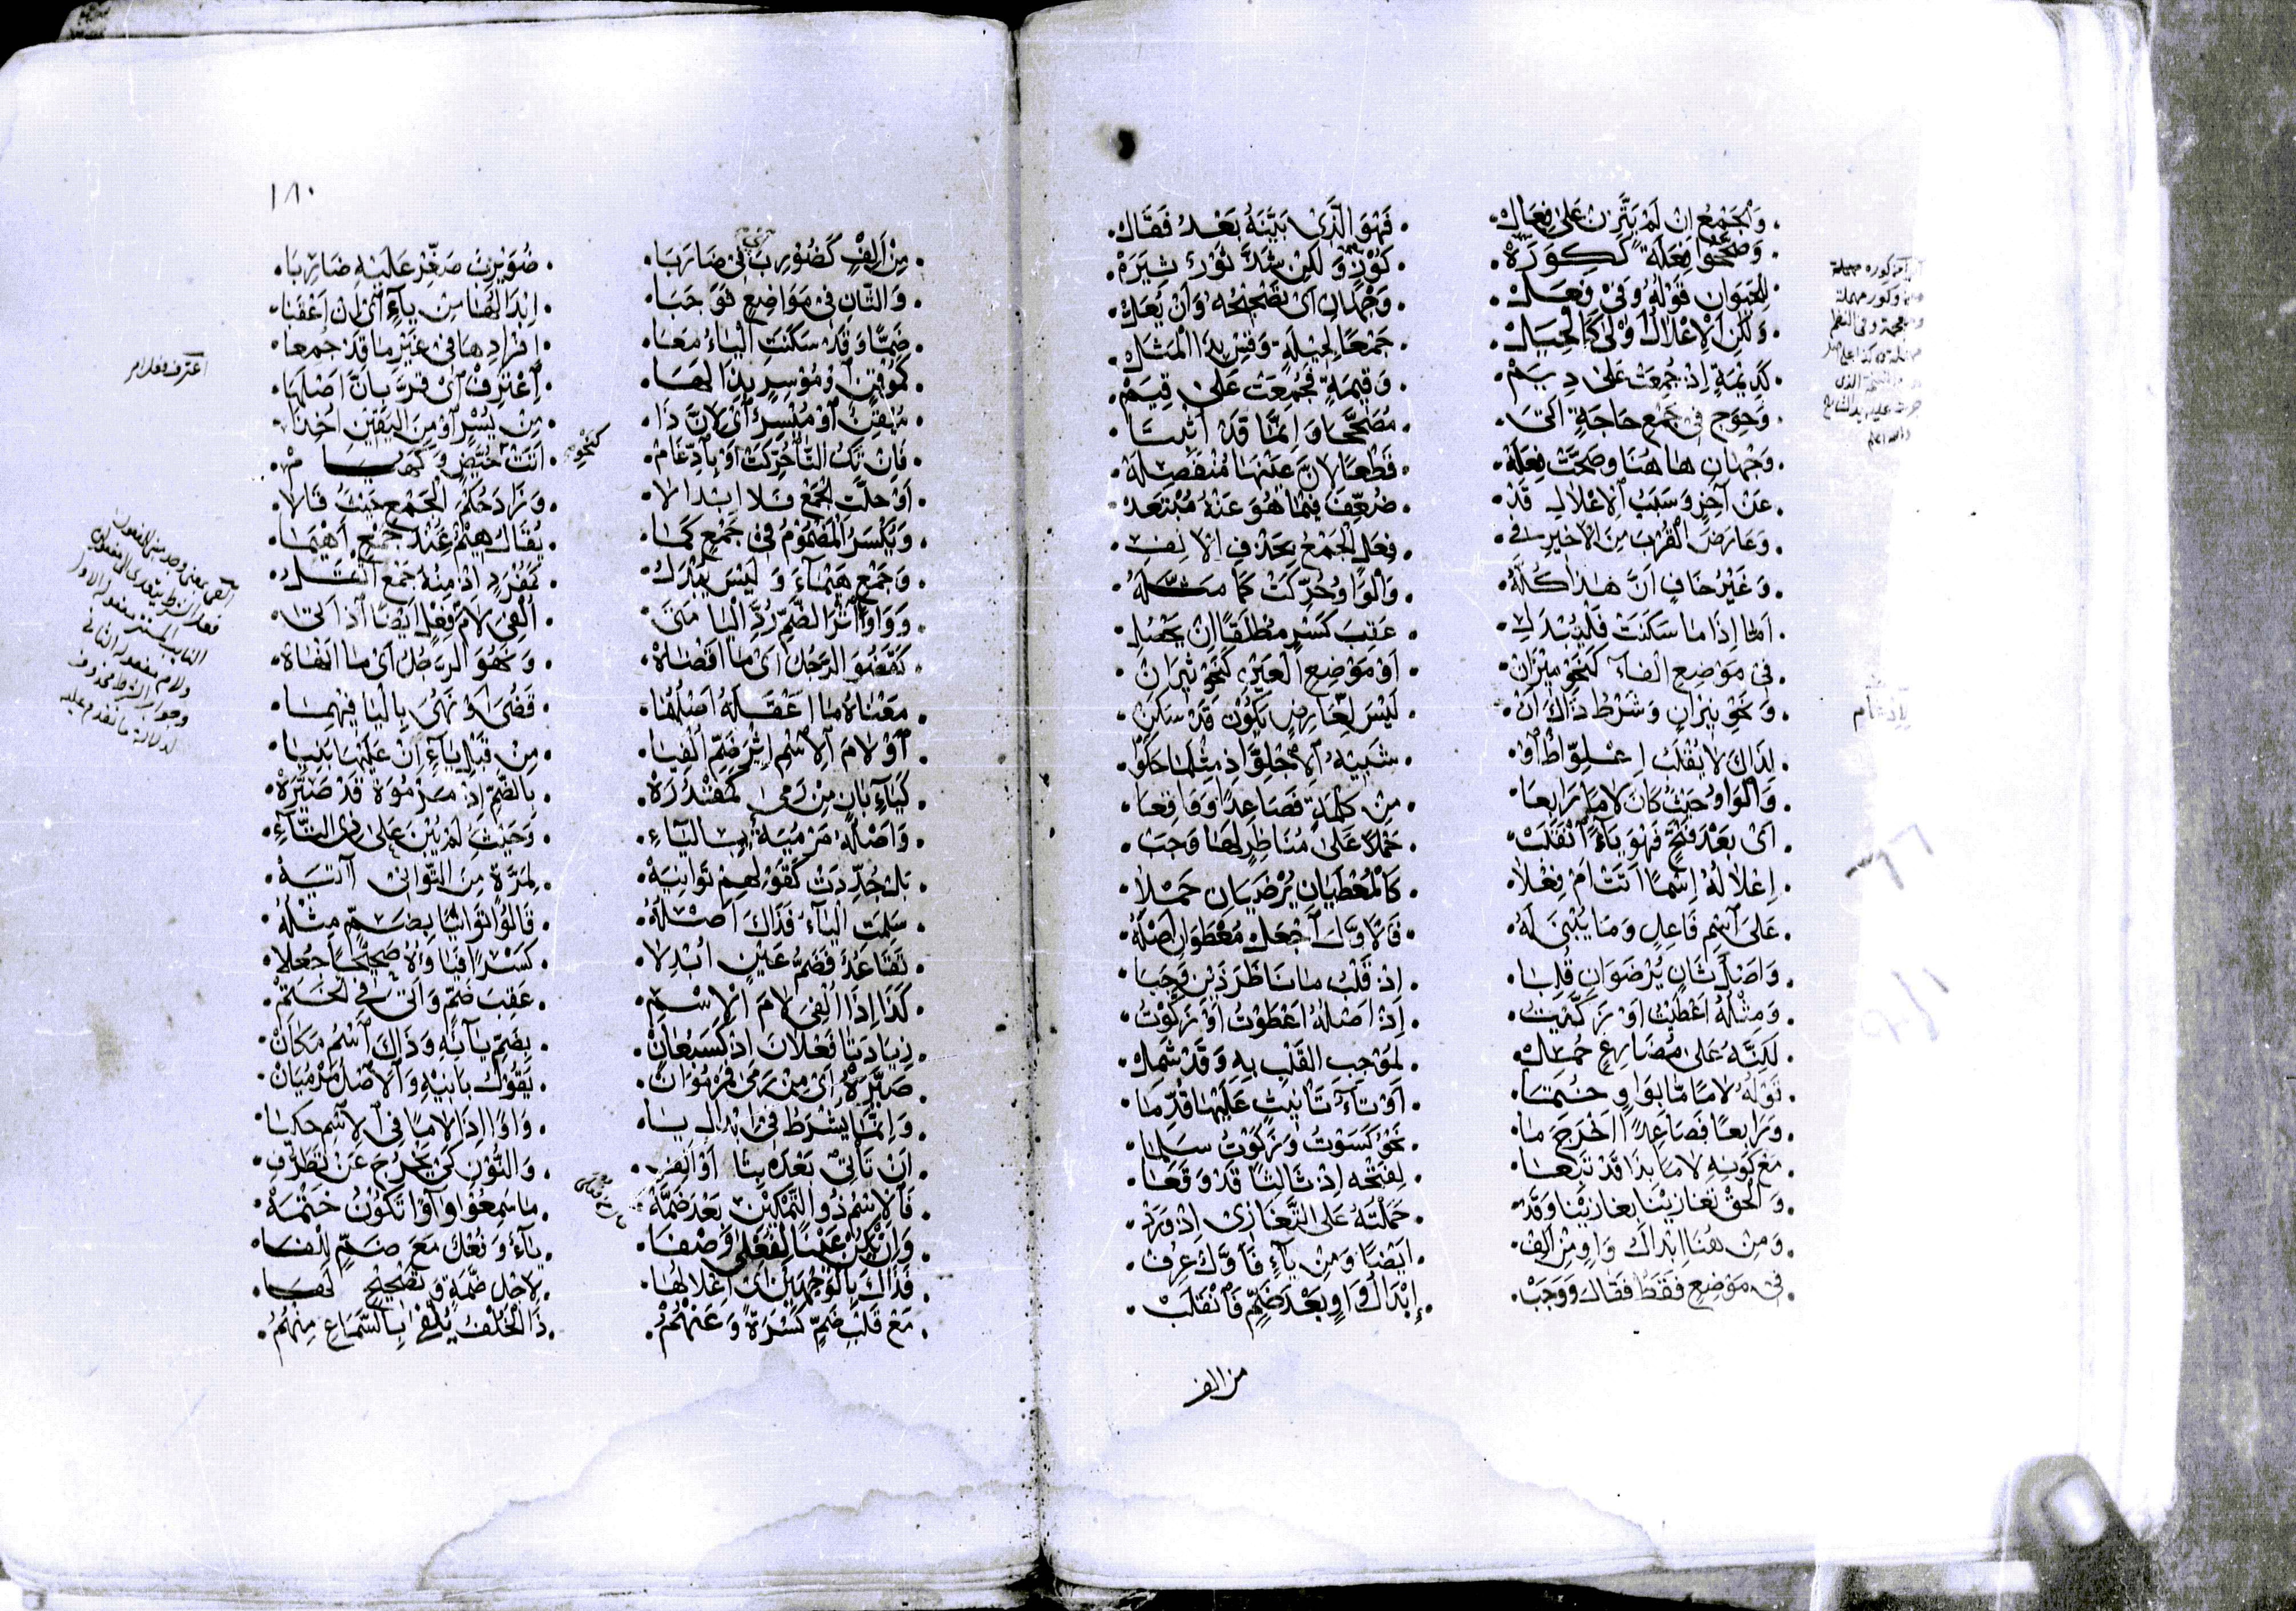 وَالْجَمْعُ اِنْ لَمْ يَتَّزِنْ عَلَى فِعَالْ . فَهْوَ الَّذِي بَيَّنَهُ بَعْدُ فَقَالْ
وَصَحَّحُوا فِعَلَةً كَكِوَزَهْ . كُوْزٍ وَلَكِنْ شَذَّ ثَوْرٌ ثِيَرَهْ
لِلْحَيَوَانِ قَوْلُهُ وَفِي فِعَلْ . وَجْهَانِ اَيْ تَصْحِيْحُهُ وَاَنْ يُعَلْ
وَلَكِنِ الْاِعْلَالُ اَوْلَى كَالْحِيَلْ . جَمْعًا لِحِيْلَةٍ وَقِسْ بِذَا الْمَثَلْ
كَدِيْمَةٍ اِذْ جُمِعَتْ عَلَى دِيَمْ . وَقِيْمَةٍ فَجُمِعَتْ عَلَى قِيَمْ
وَحِوَجٍ فِي جَمْعِ حَاجَةٍ اَتَى . مُصَحَّحًا وَاِنَّمَا قَدْ اَثْبَتَا
وَجْهَانِ هَاهُنَا وَصَحَّتْ فِعَلَهْ . قَطْعًا لِاَنَّ عَيْنَهَا مُنْفَصِلَهْ
عَنْ آخِرٍ وَسَبَبُ الْاِعْلَالِ قَدْ . ضُعِّفَ فِيمَا هُوَ عَنْهُ مُبْتَعَدْ
وَعَارَضَ الْقُرْبَ مِنَ الْاَخِيْرِ فِي . فِعَلٍ الْجَمْعُ بِحَذْفِ الْاَلِفْ
وَغَيْرُ خَافٍ اَنَّ هَذَا كُلَّهُ . وَالْوَاوُ حُرِّكَتْ كَمَا مَثَّلَهُ
اَمَّا اِذَا مَا سَكَنَتْ فَلْيُبْدَلِ . عَقِبَ كَسْرٍ مُطْلَقًا اِنْ يَحْصُلِ
فِي مَوْضِعِ الْفَاءِ كَنَحْوِ مِيْزَانْ . اَوْ مَوْضِعِ الْعَيْنِ كَنَحْوِ ثِيْرَانْ
وَنَحْوِ نِيْرَانٍ وَشَرْطُ ذَاكَ اَنْ . لَيْسَ لِعَارِضٍ يَكُوْنُ قَدْ سَكَنْ
لِذَاكَ لَا يُقْلَبُ اِعْلِوَّاطٌ اَوْ . شَبِيْهُ
وَالْوَاوُ حَيْثُ كَانَ لَامًا رَابِعَا . مِنْ كَلْمَةٍ فَصَاعِدًا وَوَاقِعَا
اَيْ بَعْدَ فَتْحٍ فَهْوَ يَاءً اُنْقَلَبْ . حَمْلًا عَلَى مُنَاظِرٍ لَهَا وَجَبْ
اِعْلَالُهُ اِسْمًا اَتَتْ اَمْ فِعْلَا . كَالْمُعْطَيَانِ يُرْضَيَانِ حَمْلَا
عَلَى اسْمِ فَاعِلٍ وَمَا يُبْنَى لَهُ . فَالْاَوَّلَ اجْعَلْ مُعْطَوَانِ اَصْلَهُ
وَاَصْلُ ثَانٍ يُرْضَوَانِ قُلِبَا . اِذْ قَلْبُ مَا نَاظَرَ ذَيْنِ وَجَبَا
وَمِثْلُهُ اَعْطَيْتُ اَوْ زَكَّيْتُ . اِذْ اَصْلُهُ اَعْطَوْتُ اَوْ زَكَّوْتُ
لَكِنَّهُ عَلَى مُضَارِعٍ حُمِلْ . لِمُوْجِبِ الْقَلْبِ بِهِ وَقَدْ شَمِلْ
قَوْلُهُ لَامًا مَا بِوَاوٍ خُتِمَا . اَوْ تَاءِ تَأْنِيْثٍ عَلَيْهَا قُدِّمَا
وَرَابِعًا فَصَاعِدًا اَخْرَجَ مَا . نَحْوُ كَسَوْتُ وَزَكَوْتُ سَلِمَا
مَعْ كَوْنِهِ لَامًا بِذَا قَدْ تَبِعَا . لِفَتْحِهِ اِذْ ثَالِثًا قَدْ وَقَعَا
وَالْحَقْ تَغَازَيْنَا بِغَازَيْنَا وَقَدْ . حَمَلْتَهُ عَلَى التَّغَازِي اِذْ وَرَدْ
وَمِنْ هُنَا اِبْدَالُ وَاوٍ مِنْ اَلِفْ . اَيْضًا وَمِنْ يَاءٍ فَاَوَّلٌ عُرِفْ
فِي مَوْضِعٍ فَقَطْ فَقَالَ وَوَجَبْ . اِبْدَالُ وَاوٍ بَعْدَ ضَمٍّ فَانْقَلَبْ
من الف
١٨٠
مِنْ اَلِفٍ كَضُوْرِبَ فِي ضَارَبَا . ضُوَيْرِبٌ صَغِّرْ عَلَيْهِ ضَارِبَا
وَالثَّانِ فِي مَوَاضِعٍ فَوَجَبَا . اِبْدَالُهَا مِنْ يَاءٍ اَيْ اِنْ اَعْقَبَا
ضَمًّا وَقَدْ سَكَنَتِ الْيَاءُ مَعَا . اِفْرَادِهَا فِي غَيْرِ مَا قَدْ جُمِعَا
كَمُوْقِنٍ وَمُوْسِرٍ بِذَا لَهَا . اِعْتَرِفْ اَيْ قِرَّ بِاَنَّ اَصْلَهَا
مُيْقِنٌ اَوْ مُيْسِرٌ اَيْ لِاَنَّ ذَا . مِنْ يُسْرٍ اَوْ مِنَ الْيَقِيْنِ اُخِذَا
فَاِنْ تَكُ الْيَا حُرِّكَتْ اَوْ بِادِّغَامْ . اَتَتْ كَحُيَّضٍ وَ
اَوْ حَلَّتِ الْجَمْعَ فَلَا اِبْدَالَا . وَزَادَ حُكْمَ الْجَمْعِ حَيْثُ قَالَا
وَيُكْسَرُ الْمَضْمُوْمُ فِي جَمْعٍ كَمَا . يُقَالُ هِيْمٌ عِنْدَ جَمْعِ اَهْيَمَا
وَجَمْعِ هَيْمَاءَ وَلَيْسَ يُبْدَلُ . كَمُفْرَدٍ اِذْ مِنْهُ جَمْعٌ اَثْقَلُ
وَوَاوًا اثْرَ الضَّمِّ رُدَّ الْيَا مَتَى . اُلْفِيَ لَامَ فِعْلٍ اَيْضًا اِذْ اَتَى
كَقَضُوَ الرَّجُلُ اَيْ مَا اَقْضَاهْ . وَنَهُوَ الرَّجُلُ اَيْ مَا اَنْهَاهْ
مَعْنَاهُ مَا اَعْقَلَهُ اَصْلُهُمَا . قَضُيَ اَوْ نَهُيَ بِالْيَا فِيْهِمَا
اَوْ لَامَ الْاِسْمِ اِثْرَ ضَمٍّ اُلْفِيَا . مِنْ قَبْلِ يَاءٍ اَنْ عَلَيْهَا بُنِيَا
كَيَاءِ بَانٍ مِنْ رَمَى كَمَقْدُرَهْ . بِالضَّمِّ اِذْ مَرْمُوَةً قَدْ صَيَّرَهْ
وَاَصْلُهُ مَرْمُيَةٌ بِالْيَاءِ . وَحَيْثُ لَمْ يُبْنَ عَلَى ذِي التَّاءِ
بَلْ جُدِّدَتْ كَقَوْلِهِمْ تَوَانِيَهْ . لِمَرَّةٍ مِنَ التَّوَانِي آتِيَهْ
سَلِمَتِ الْيَاءُ فَذَاكَ اَصْلُهُ . قَالُوا تَوَانُيًا بِضَمٍّ مِثْلُهُ
تَقَاعُدٌ فَضَمُّ عَيْنٍ اُبْدِلَا . كَسْرًا فَيَاؤُهُ صَحِيْحًا جُعِلَا
كَذَا اِذَا اُلْفِيَ لَامَ الْاِسْمِ . عَقِبَ ضَمٍّ وَاَتَى فِي الْخَتْمِ
زِيَادَتَا فَعُلَانَ اِذْ كَسَبُعَانْ . بِضَمِّ بَائِهِ وَذَاكَ اسْمُ مَكَانْ
صَيَّرَهُ اَيْ مِنْ رَمَى فَرَمُوَانْ . يَقُوْلُ بَانِيْهِ وَالْاَصْلُ رَمُيَانْ
وَاِنَّمَا يُشْرَطُ فِي اِبْدَالِ يَا . وَاوًا اِذَا لَامًا فِي الْاِسْمِ حُكِيَا
اَنْ تَأْتِيْ بَعْدَهُ بِتَا اَوْ اَلِفِ . وَالنُّوْنِ كَيْ يَخْرُجَ عَنْ تَطَرُّفِ
فَالْاِسْمُ ذُو التَّمْكِيْنِ بَعْدَ ضَمَّهْ . مَا سَمِعُوْا وَاوًا تَكُوْنُ خَتْمَهْ
وَاِنْ تَكُنْ عَيْنًا لِفُعْلَى وَصْفَا . يَاءٌ وَنُعْلُ مَعَ ضَمٍّ لِلْفَا
فَذَاكَ بِالْوَجْهَيْنِ اَيْ اِعْلَالُهَا . لِاَجْلِ ضَمَّةٍ وَتَصْحِيْحٍ لَهَا
مَعْ قَلْبِ ضَمٍّ كَسْرَةً وَعَنْهُمُ . ذَا الْخُلْفُ يُلْفَى بِالسَّمَاعِ مِنْهُمُ
كنحو
اعترف فعل امر
النايب المستتر مفعوله الاول
ولام مفعوله الثاني
وجواب الشرط محذوف
لدلالة ما تقدم عليه